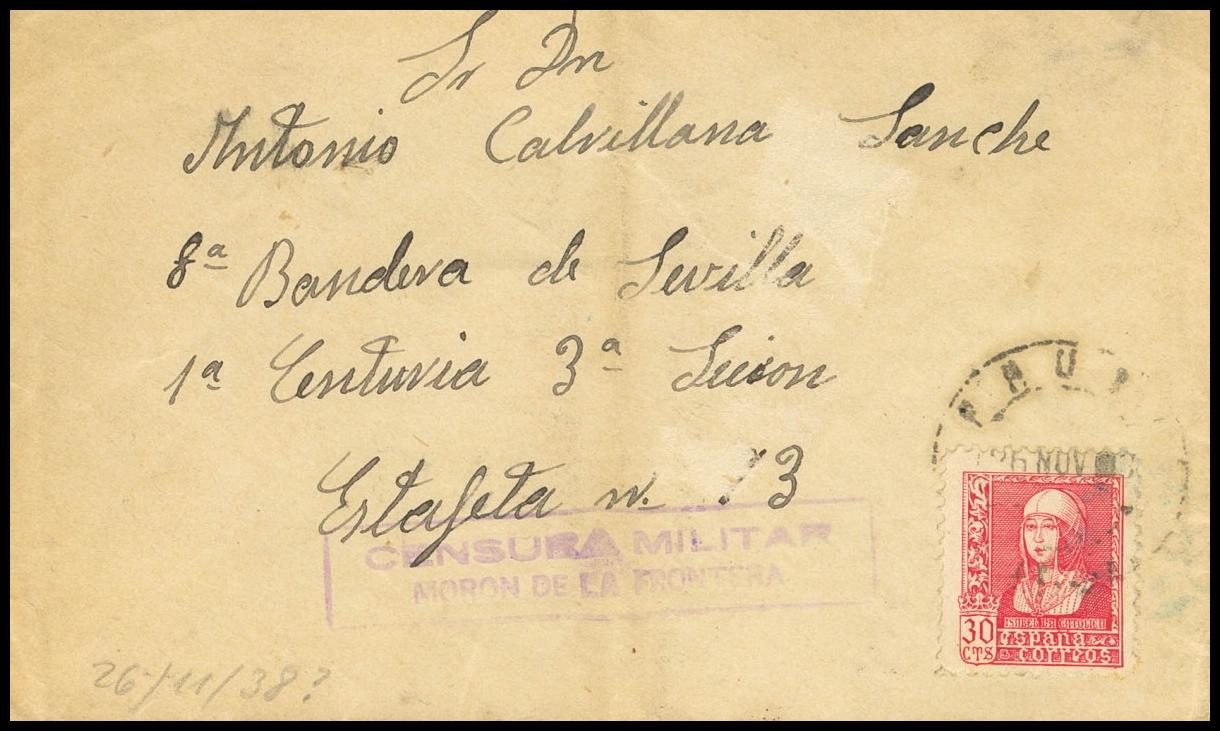 Sr Dn
Antonio Calvillana Sanche
8ª Bandera de Sevilla
1ª Centuria 3ª Seccion
Estafeta n. 73
CENSURA MILITAR
MORON DE LA FRONTERA
NOV
ISABEL LA CATOLICA
30 CTS
españa
correos
26/11/38?